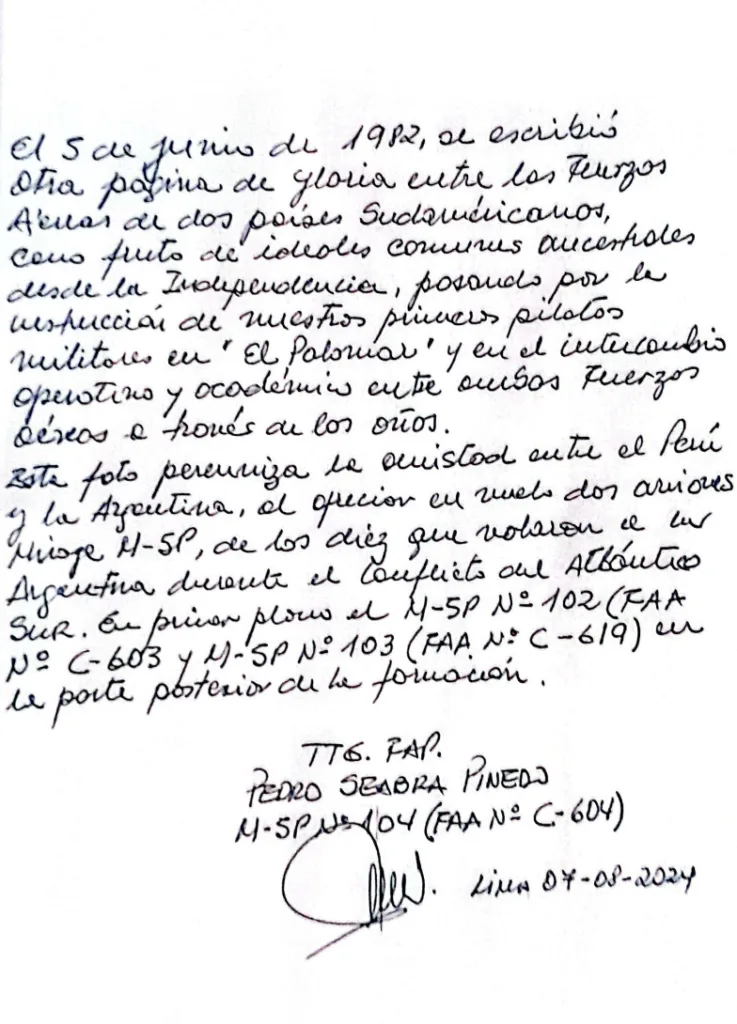 El 5 de junio de 1982, se escribió
otra página de gloria entre las Fuerzas
Aéreas de dos países Sudaméricanos,
como fruto de ideales comunes ancestrales
desde la Independencia, pasando por la
instrucción de nuestros primeros pilotos
militares en "El Palomar" y en el intercambio
operativo y académico entre ambas Fuerzas
Aéreas a través de los años.
Esta foto perenniza la amistad entre el Perú
y la Argentina, al apreciar en vuelo dos aviones
Mirage M-5P, de los diez que volaron a la
Argentina durante el Conflicto del Atlántico
Sur. En primer plano el M-5P Nº 102 (FAA
Nº C-603 y M-5P Nº 103 (FAA Nº C-619) en
la parte posterior de la formación.
TTG. FAP.
PEDRO SEABRA PINEDO
M-5P Nº 104 (FAA Nº C-604)
LIMA 07-08-2024